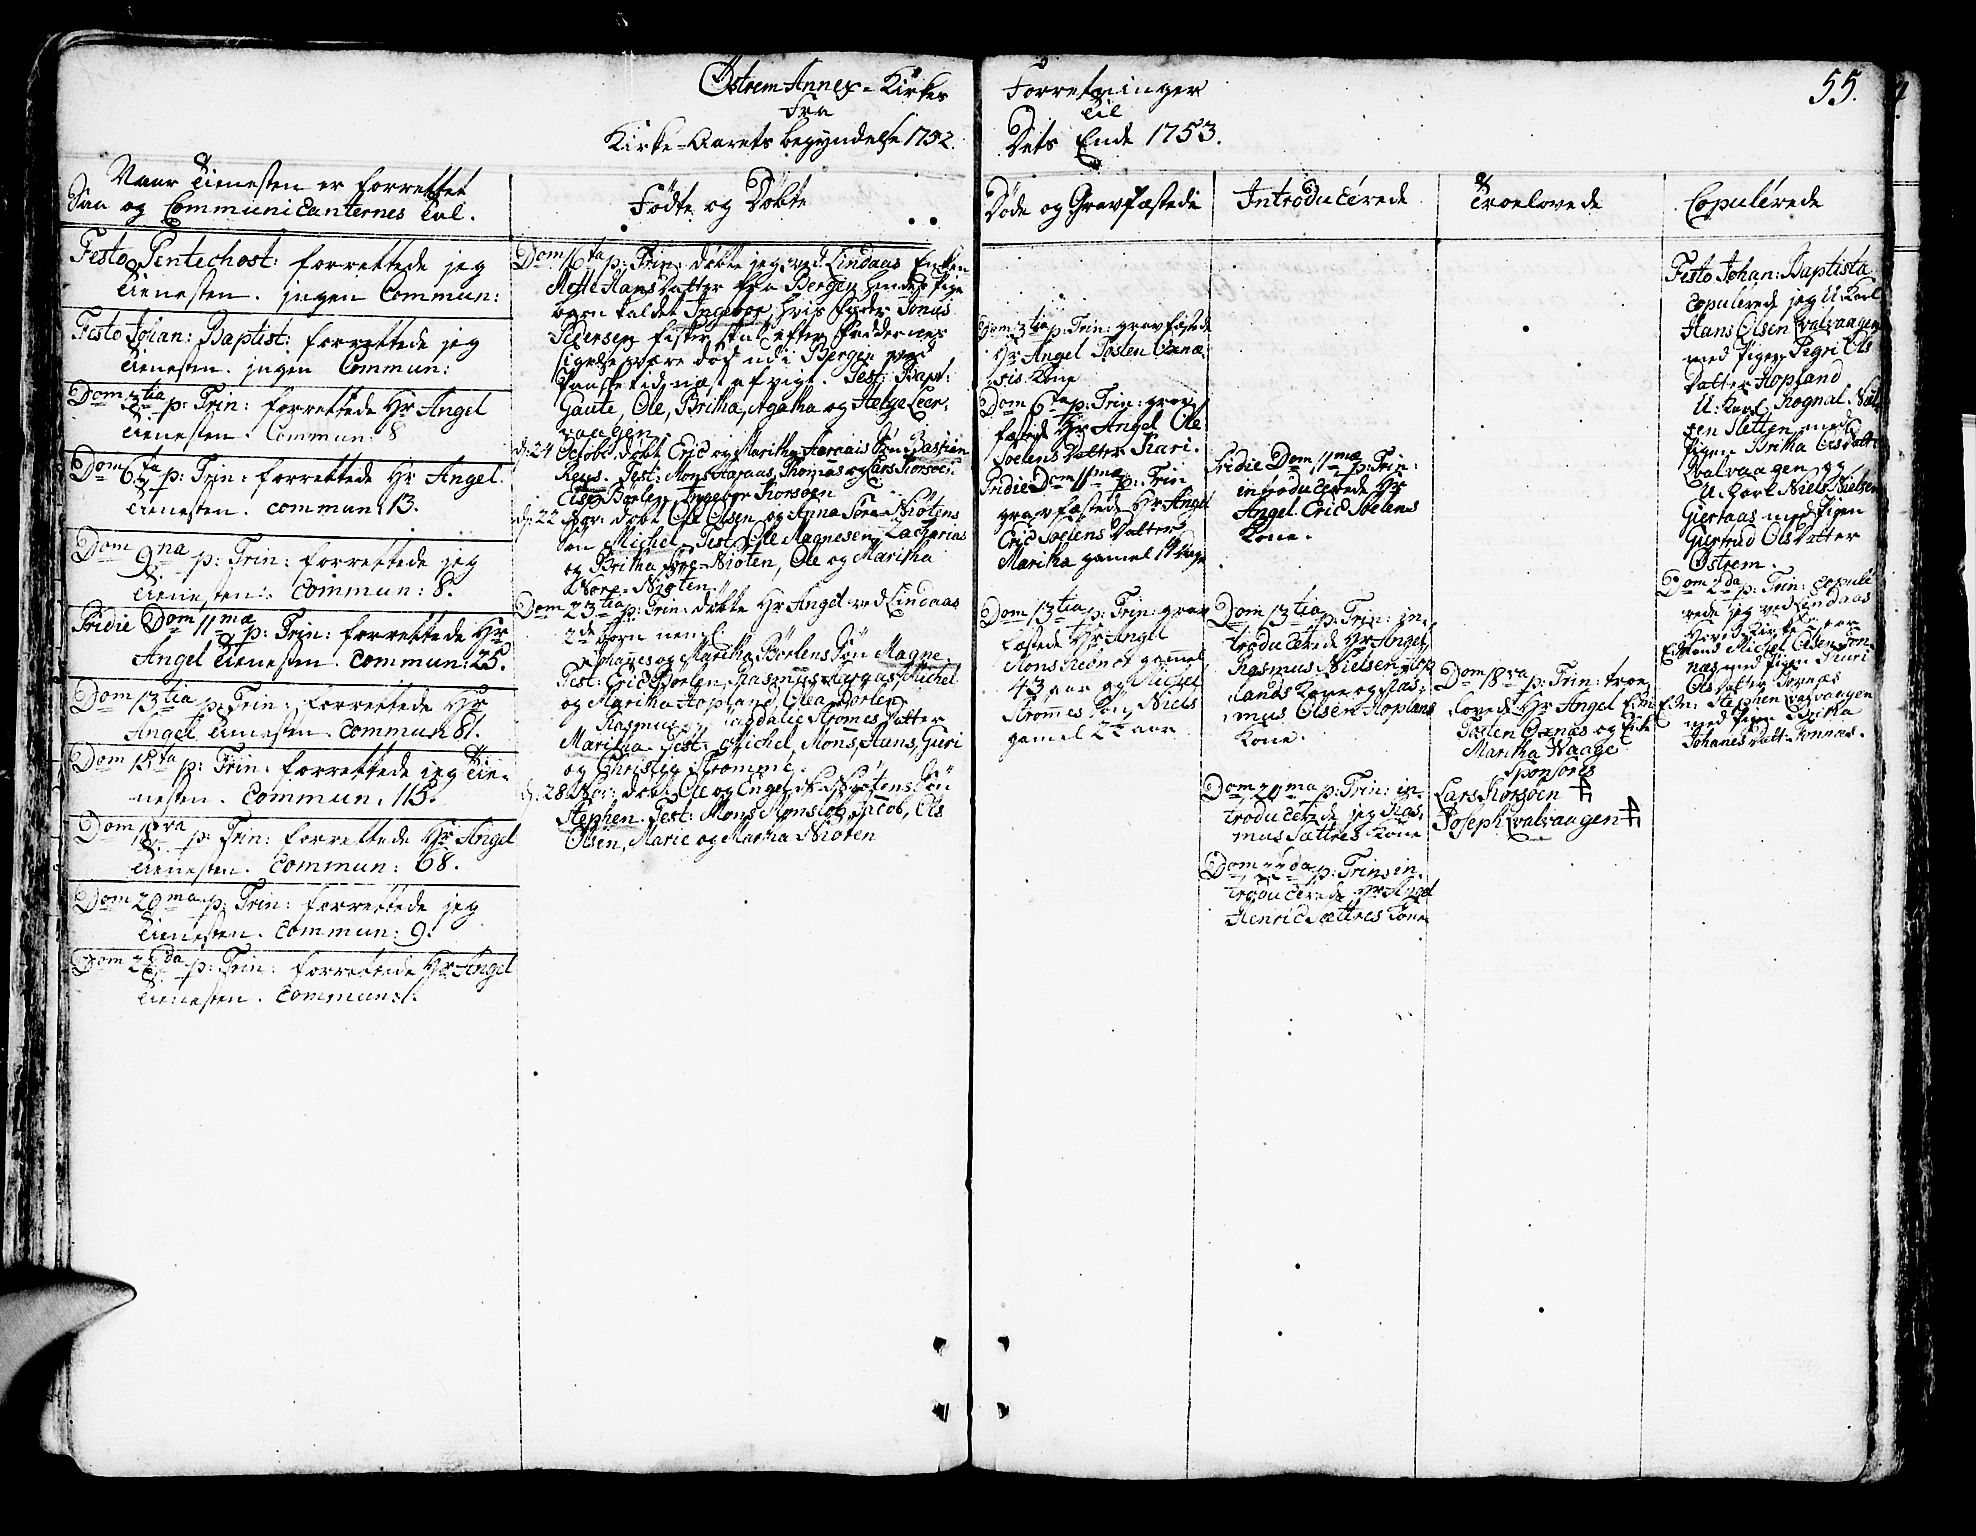 Østrem Annex-Kirkes
Fra
Kirke-Aarets begyndelse 1752.
Forretninger
til
Dets Ende 1753.
55.
Naar Tienesten er forrettet
Saa og Communicanternes tal.
Festo Pentechost: forrettede jeg
Tienesten. jngen Commun:
Festo Johan: Baptist: forrettede jeg
Tienesten. jngen Commun:
Dom 3tia p: Trin: forrettede Hr Angel
Tienesten. Commun: 8
Dom 6ta p: Trin: forrettede Hr Angel.
Tienesten. commun: 13.
Dom 9na p: Trin: forrettede jeg
Tienesten: commun: 8.
Pridie Dom 11mæ p: Trin: forrettede Hr
Angel Tienesten. commun: 25.
Dom 13tia p: Trin: forrettede Hr
Angel Tienesten. commun: 81.
Dom 15ta p: Trin: forrettede jeg Tie-
nesten. Commun: 115.
Dom 18va p: Trin: forrettede Hr Angel
Tienesten. Commun: 68.
Dom 20ma p: Trin: forrettede jeg
Tienesten. Commun: 9.
Dom 22da p: Trin: forrettede Hr Angel
Tienesten. Commun: 1.
Födte og Döbte
Dom 16ta p: Trin: døbte jeg ved Lindaas Enken
Mette HansDatter fra Bergen hendes Pige
barn kaldet Ingebor, hvis fader Jonas
Pedersen fisker skal efter faddernes
sigelse være død udi Bergen ved
Paaske tid næst afvigt. Test: Bapt:
Gaute, Ole, Britha, Agatha og Helge Leer-
vaagen
d: 24 Octobr: døbt Eric og Maritha Søn Bastian
Test: Mons Thomas og Lars Korsöen.
Elsea Börlen, Ingebor Korsöen
d: 22 døbt Ole Olsen og Anna Nore-Niötens
Søn Michel. Test: Ole Magnesen, Zacharias
og Britha Nore-Niöten, Ole og Maritha
Nore-Niöten.
Dom 23tia p: Trin: døbte Hr Angel ved Lindaas
2de børn neml:
Johannes og Maritha Börlens Søn Magne
Test: Eric Börlen, Rasmus Michel
og Maritha Hopland, Börlen
Rasmus og Magdalie Strømes Datter
Maritha. Test: Michel, Mons, Anns, Guri
og Christie Strömme.
d: 28 Nov: døbt Ole og Engel Niötens Søn
Stephen. Test: Mons Jacob, Ols
Olsen, Marie og Martha Niöten
Döde og Gravfæstede
Dom 3tia p: Trin: gravfæstede
Hr Angel Tosten Oxnæ-
sis Kone
Dom 6ta p: Trin: grav
fæstede Hr Angel Ole
Soelens Datter Kari.
Pridie Dom 11mæ p: Trin
gravfæstede Hr Angel
Eric Soelens Datter
Maritha gamel 14 dage
Dom 13tia p: Trin: grav
fæstede Hr Angel
Mons gamel
43 aar og Michel
Strømes Søn Niels
gamel 2½ aar
Introducerede
Pridie Dom 11mæ p: Trin:
introducerede Hr
Angel Eric Soelens
Kone.
Dom 13tia p: Trin: in-
troducerede Hr Angel
Rasmus Nielsen Hop
lands Kone og Ras-
mus Olsen Hoplans
Kone.
Dom 20ma p: Trin: in-
troducerede jeg Ras-
mus Sættres Kone
Dom 22da p: Trin: in-
troducerede Hr Angel
Henric Sættres Kone
Troelovede
Dom 18va p: Trin: troe-
lovede Hr Angel
Tosten Oxnæs og Pike
Maritha Waage
Sponsores
Lars Korsöen
Joseph Qvalvaagen
Copulerede
Festo Johan: Baptista
copulerede jeg U: Karl
Hans Olsen Qvalvaagen
med Pigen Pegri Ols
Datter Hopland
U: Karl Rognal
sen Sletten med
Pigen Britha Olsdatter
Qvalvaagen og
U: Karl Niels Nielsen
Giertaas med Pigen
Giertrud OlsDatter
Østrem.
Dom 2da p: Trin: copule-
rede jeg ved Lindaas
Hoved Kirke
Michel Olsen Ton-
næs med Pigen Kuri
OlsDatter Tornæs
Stephen Qvalvaagen
med Pigen Britha
Johanes Datt: Tonnæs.